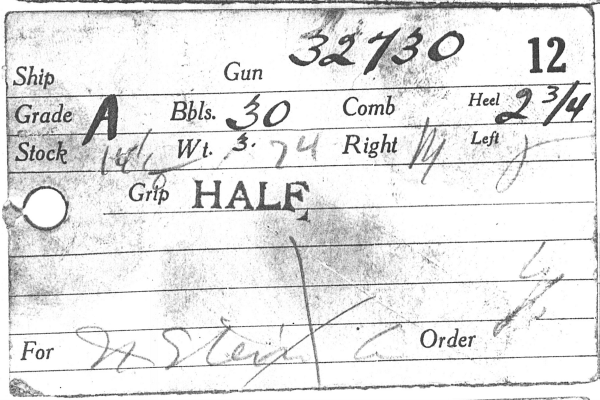 Ship Gun 32730 12
Grade A Bbls. 30 Comb Heel 2 3/4
Stock 14 1/ Wt. 3. 74 Right M Left
Grip HALF
For Order